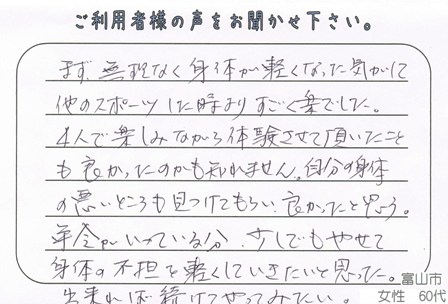 ご利用者様の声をお聞かせ下さい。
まず、無理なく身体が軽くなった気がして
他のスポーツした時よりすごく楽でした。
4人で楽しみながら体験させて頂いたこと
も良かったのかも知れません。自分の身体
の悪いところも見つけてもらい、良かったと思う。
年令がいっている分、少しでもやせて
身体の不担を軽くしていきたいと思った。
出来れば続けてやってみたい。
富山市
女性 60代